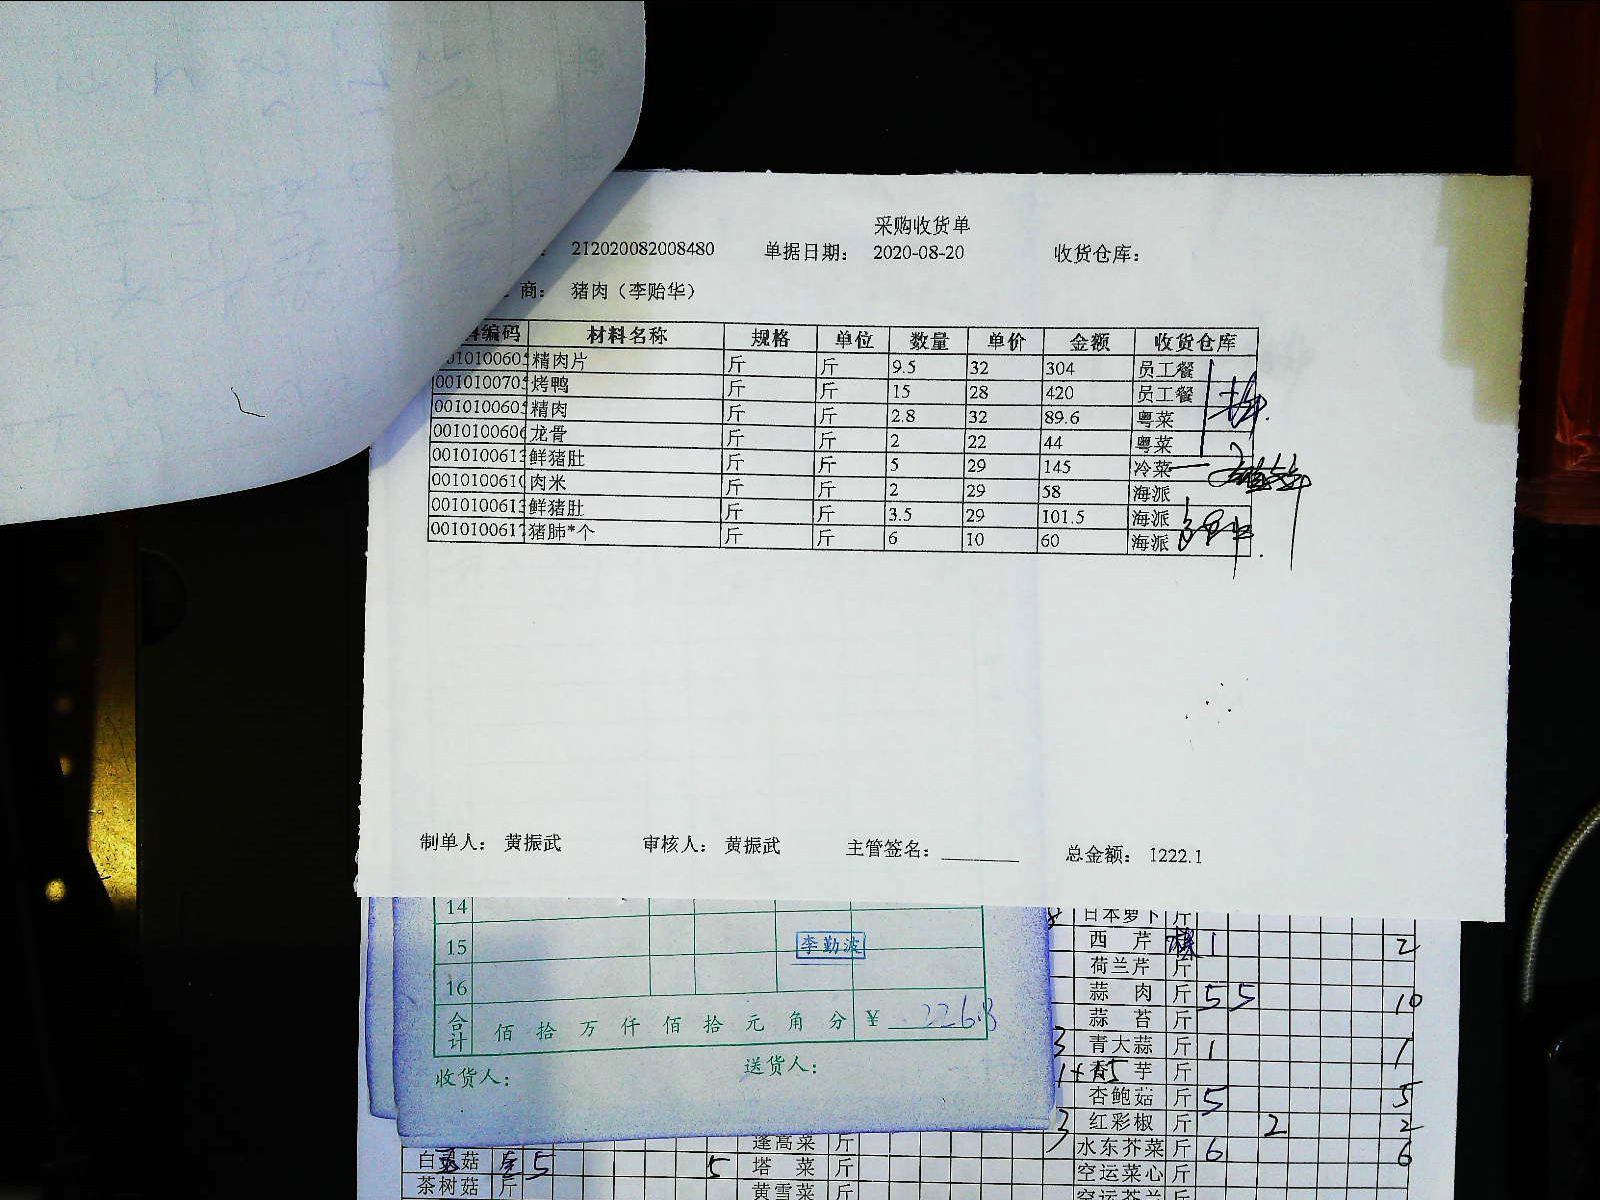 采购收货单
: 212020082008480 单据日期: 2020-08-20 收货仓库:
商: 猪肉（李贻华）
编码 材料名称 规格 单位 数量 单价 金额 收货仓库
010100605 精肉片 斤 斤 9.5 32 304 员工餐
0010100705 烤鸭 斤 斤 15 28 420 员工餐
0010100605 精肉 斤 斤 2.8 32 89.6 粤菜
0010100606 龙骨 斤 斤 2 22 44 粤菜
0010100613 鲜猪肚 斤 斤 5 29 145 冷菜
0010100610 肉米 斤 斤 2 29 58 海派
0010100613 鲜猪肚 斤 斤 3.5 29 101.5 海派
0010100617 猪肺*个 斤 斤 6 10 60 海派
制单人: 黄振武 审核人: 黄振武 主管签名: 总金额: 1222.1
14
15 李勤波
16
合计 佰 拾 万 仟 佰 拾 元 角 分 ¥ 226.8
收货人: 送货人:
日本萝卜 斤
西 芹 1 2
荷兰芹 斤
蒜 肉 斤 5 5 10
蒜 苔 斤
3 青大蒜 斤 1 1
芋 斤
杏鲍菇 斤 5 5
3 红彩椒 斤 2 2
水东芥菜 斤 6 6
空运菜心 斤
空运芥兰 斤
蓬蒿菜 斤
白 菇 5 5 塔 菜 斤
茶树菇 斤 黄雪菜 斤